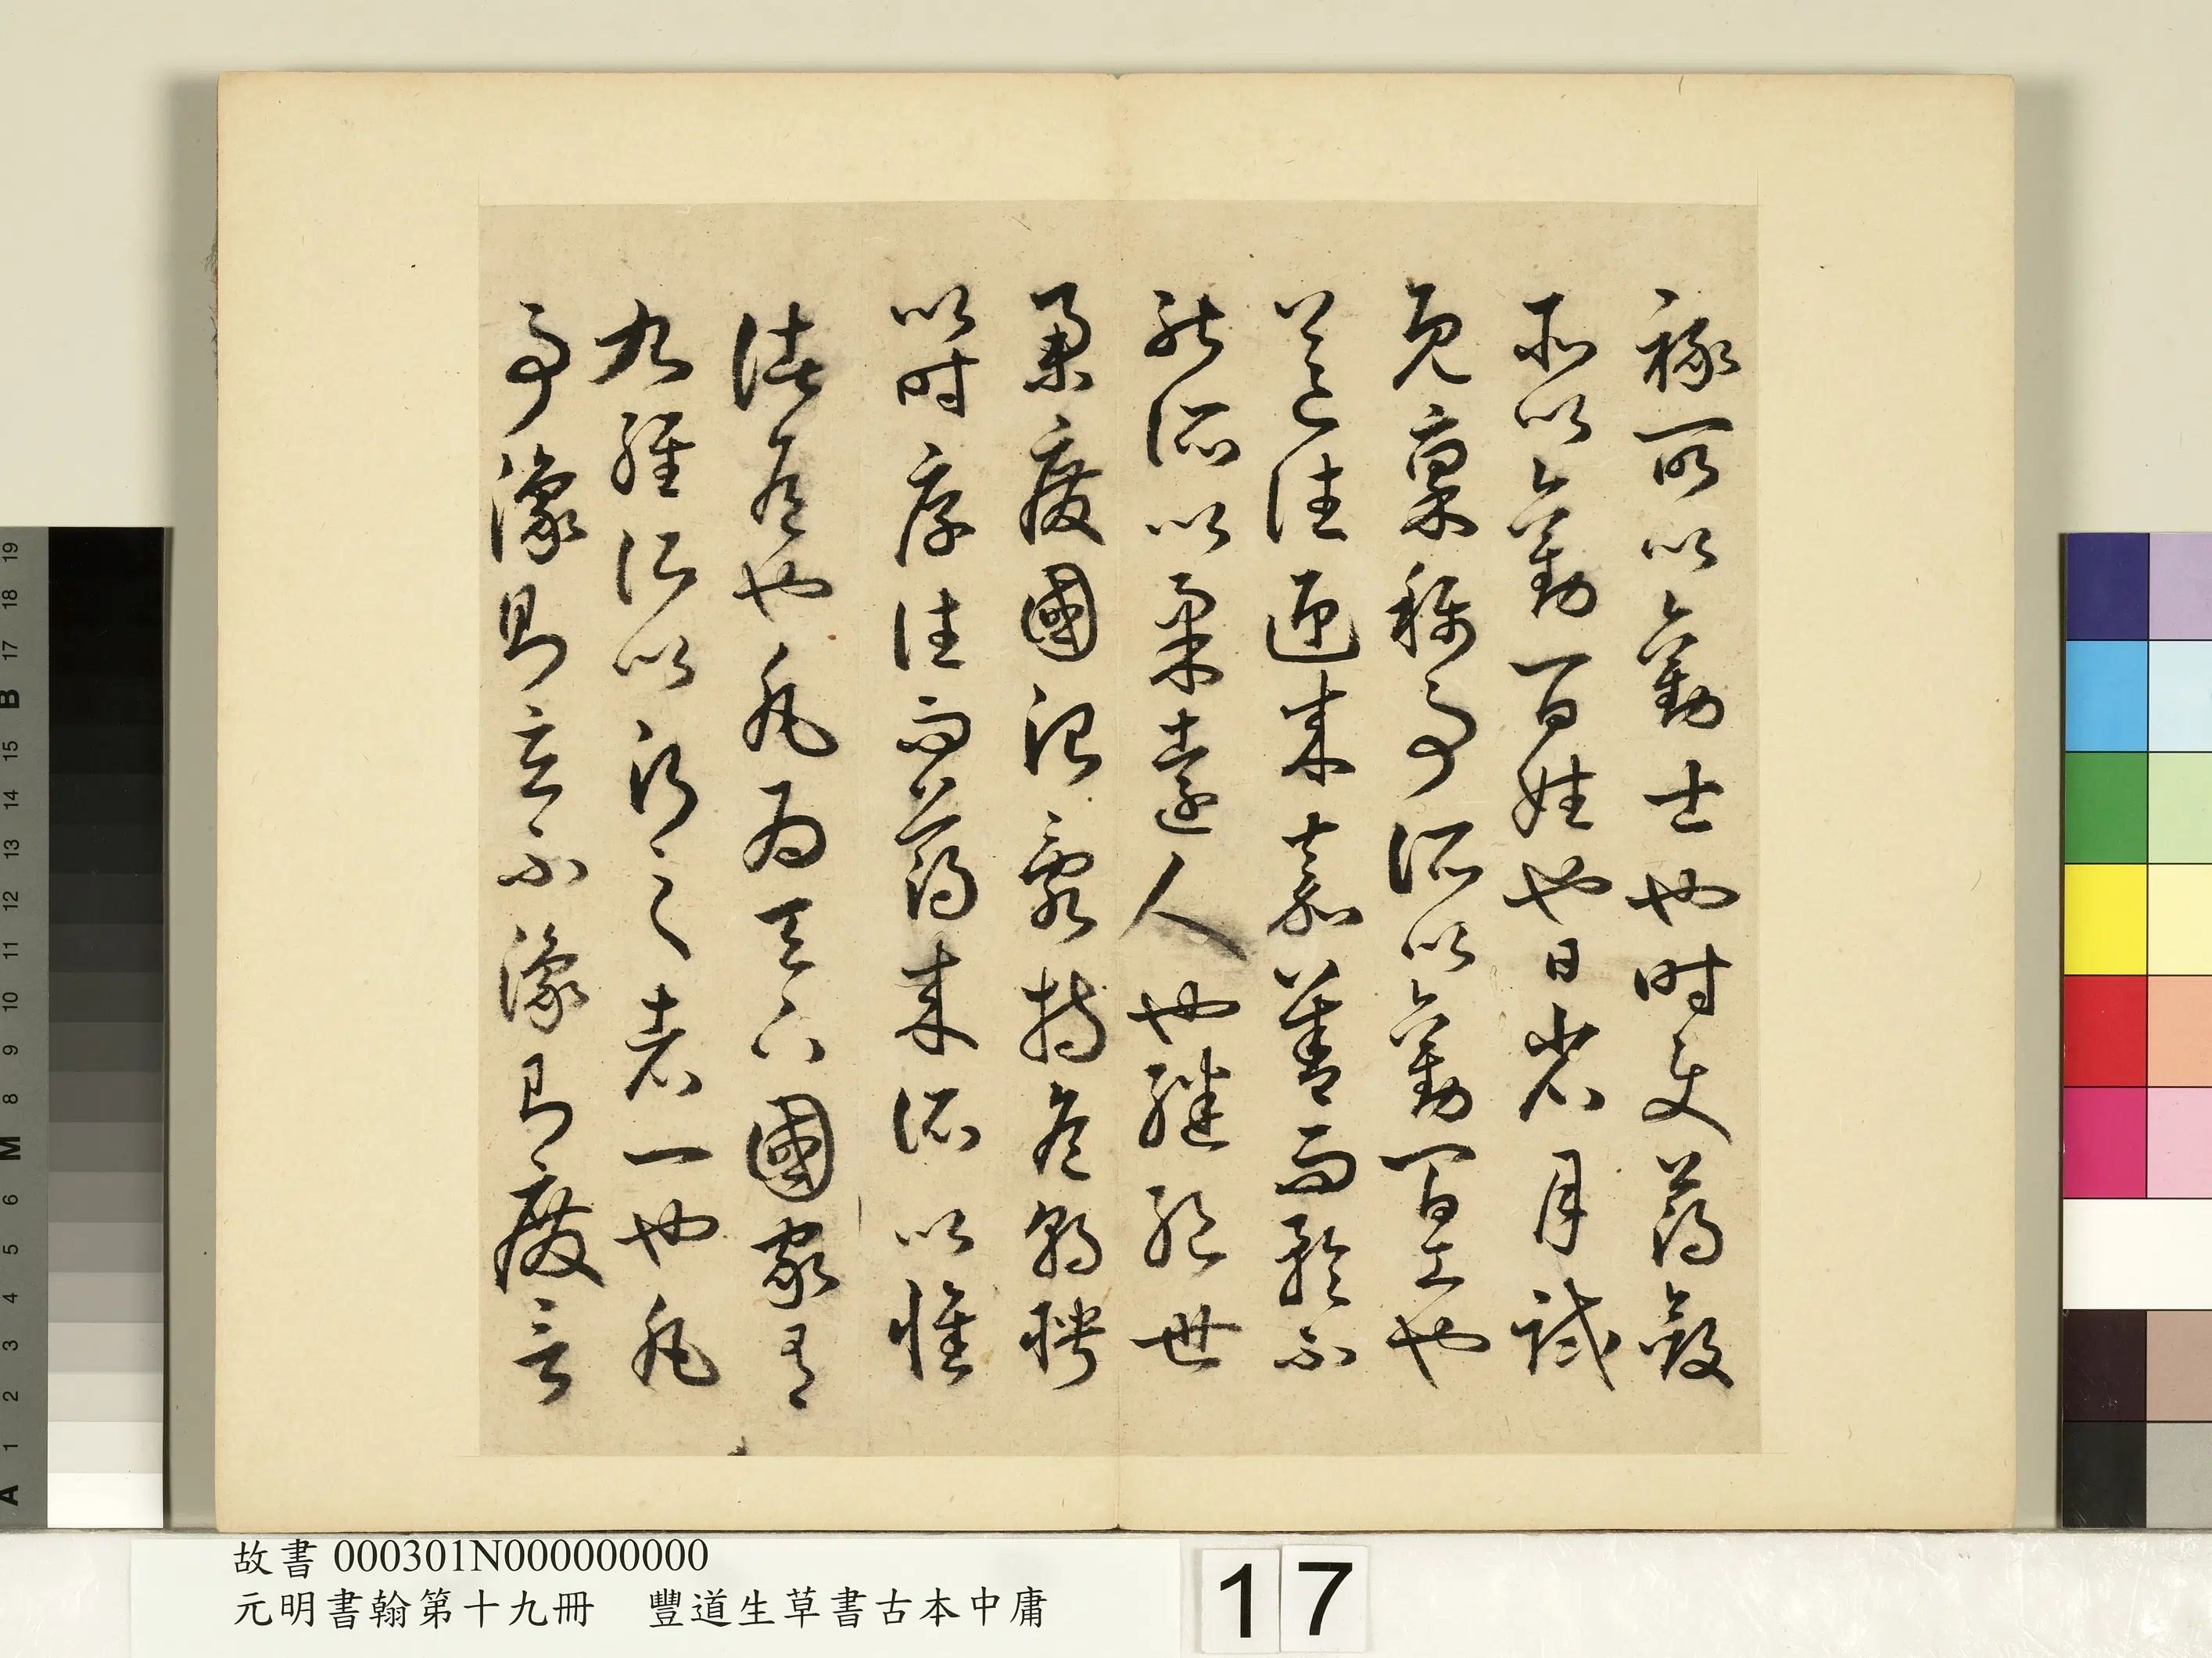 祿所以勸士也時使薄斂
所以勸百姓也日省月試
既稟稱事所以勸百工也
送往迎來嘉善而矜不
能所以柔遠人也繼絕世
舉廢國治亂持危朝聘
以時厚往而薄來所以懷
諸侯也凡為天下國家有
九經所以行之者一也凡
事豫則立不豫則廢言
故書 000301N000000000
元明書翰第十九冊 豐道生草書古本中庸
17
A 1 2 3 4 5 6 M 8 9 10 11 12 13 14 15 B 17 18 19